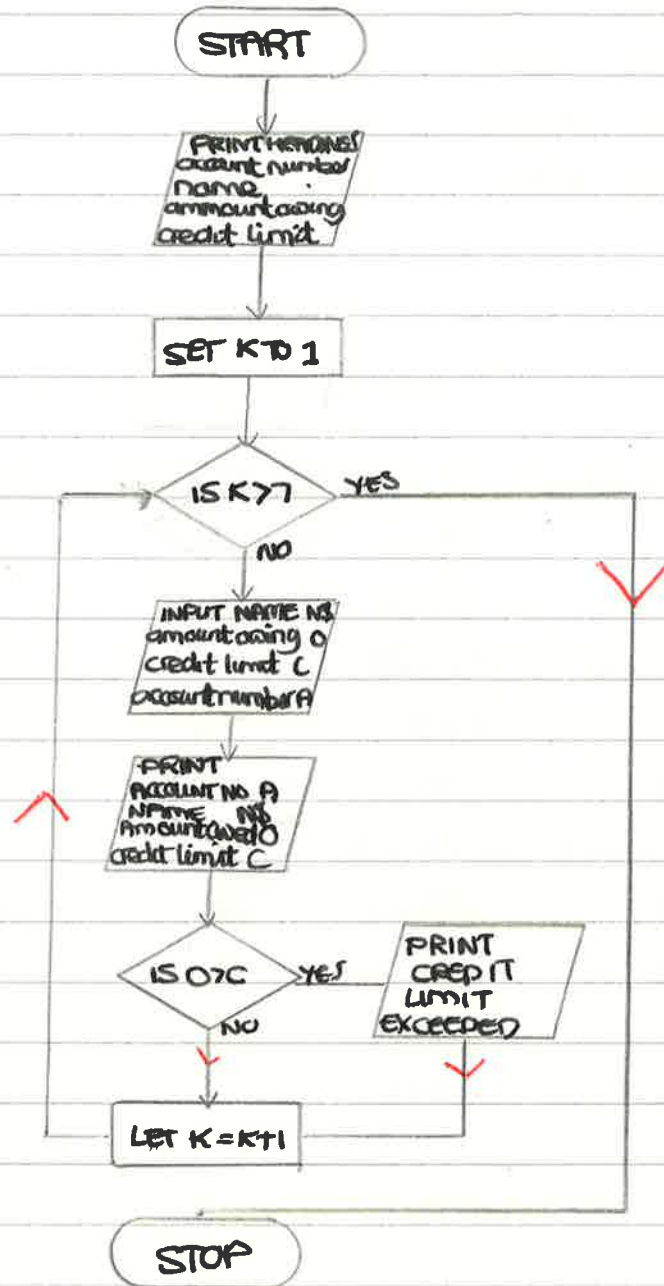 START
PRINT HEADINGS
account number
name
ammount owing
credit limit
SET K TO 1
IS K>7
YES
NO
INPUT NAME N$
amount owing O
credit limit C
account number A
PRINT
ACCOUNT NO A
NAME N$
Amount Owed O
credit limit C
IS O>C
YES
PRINT
CREDIT
LIMIT
EXCEEDED
NO
LET K=K+1
STOP